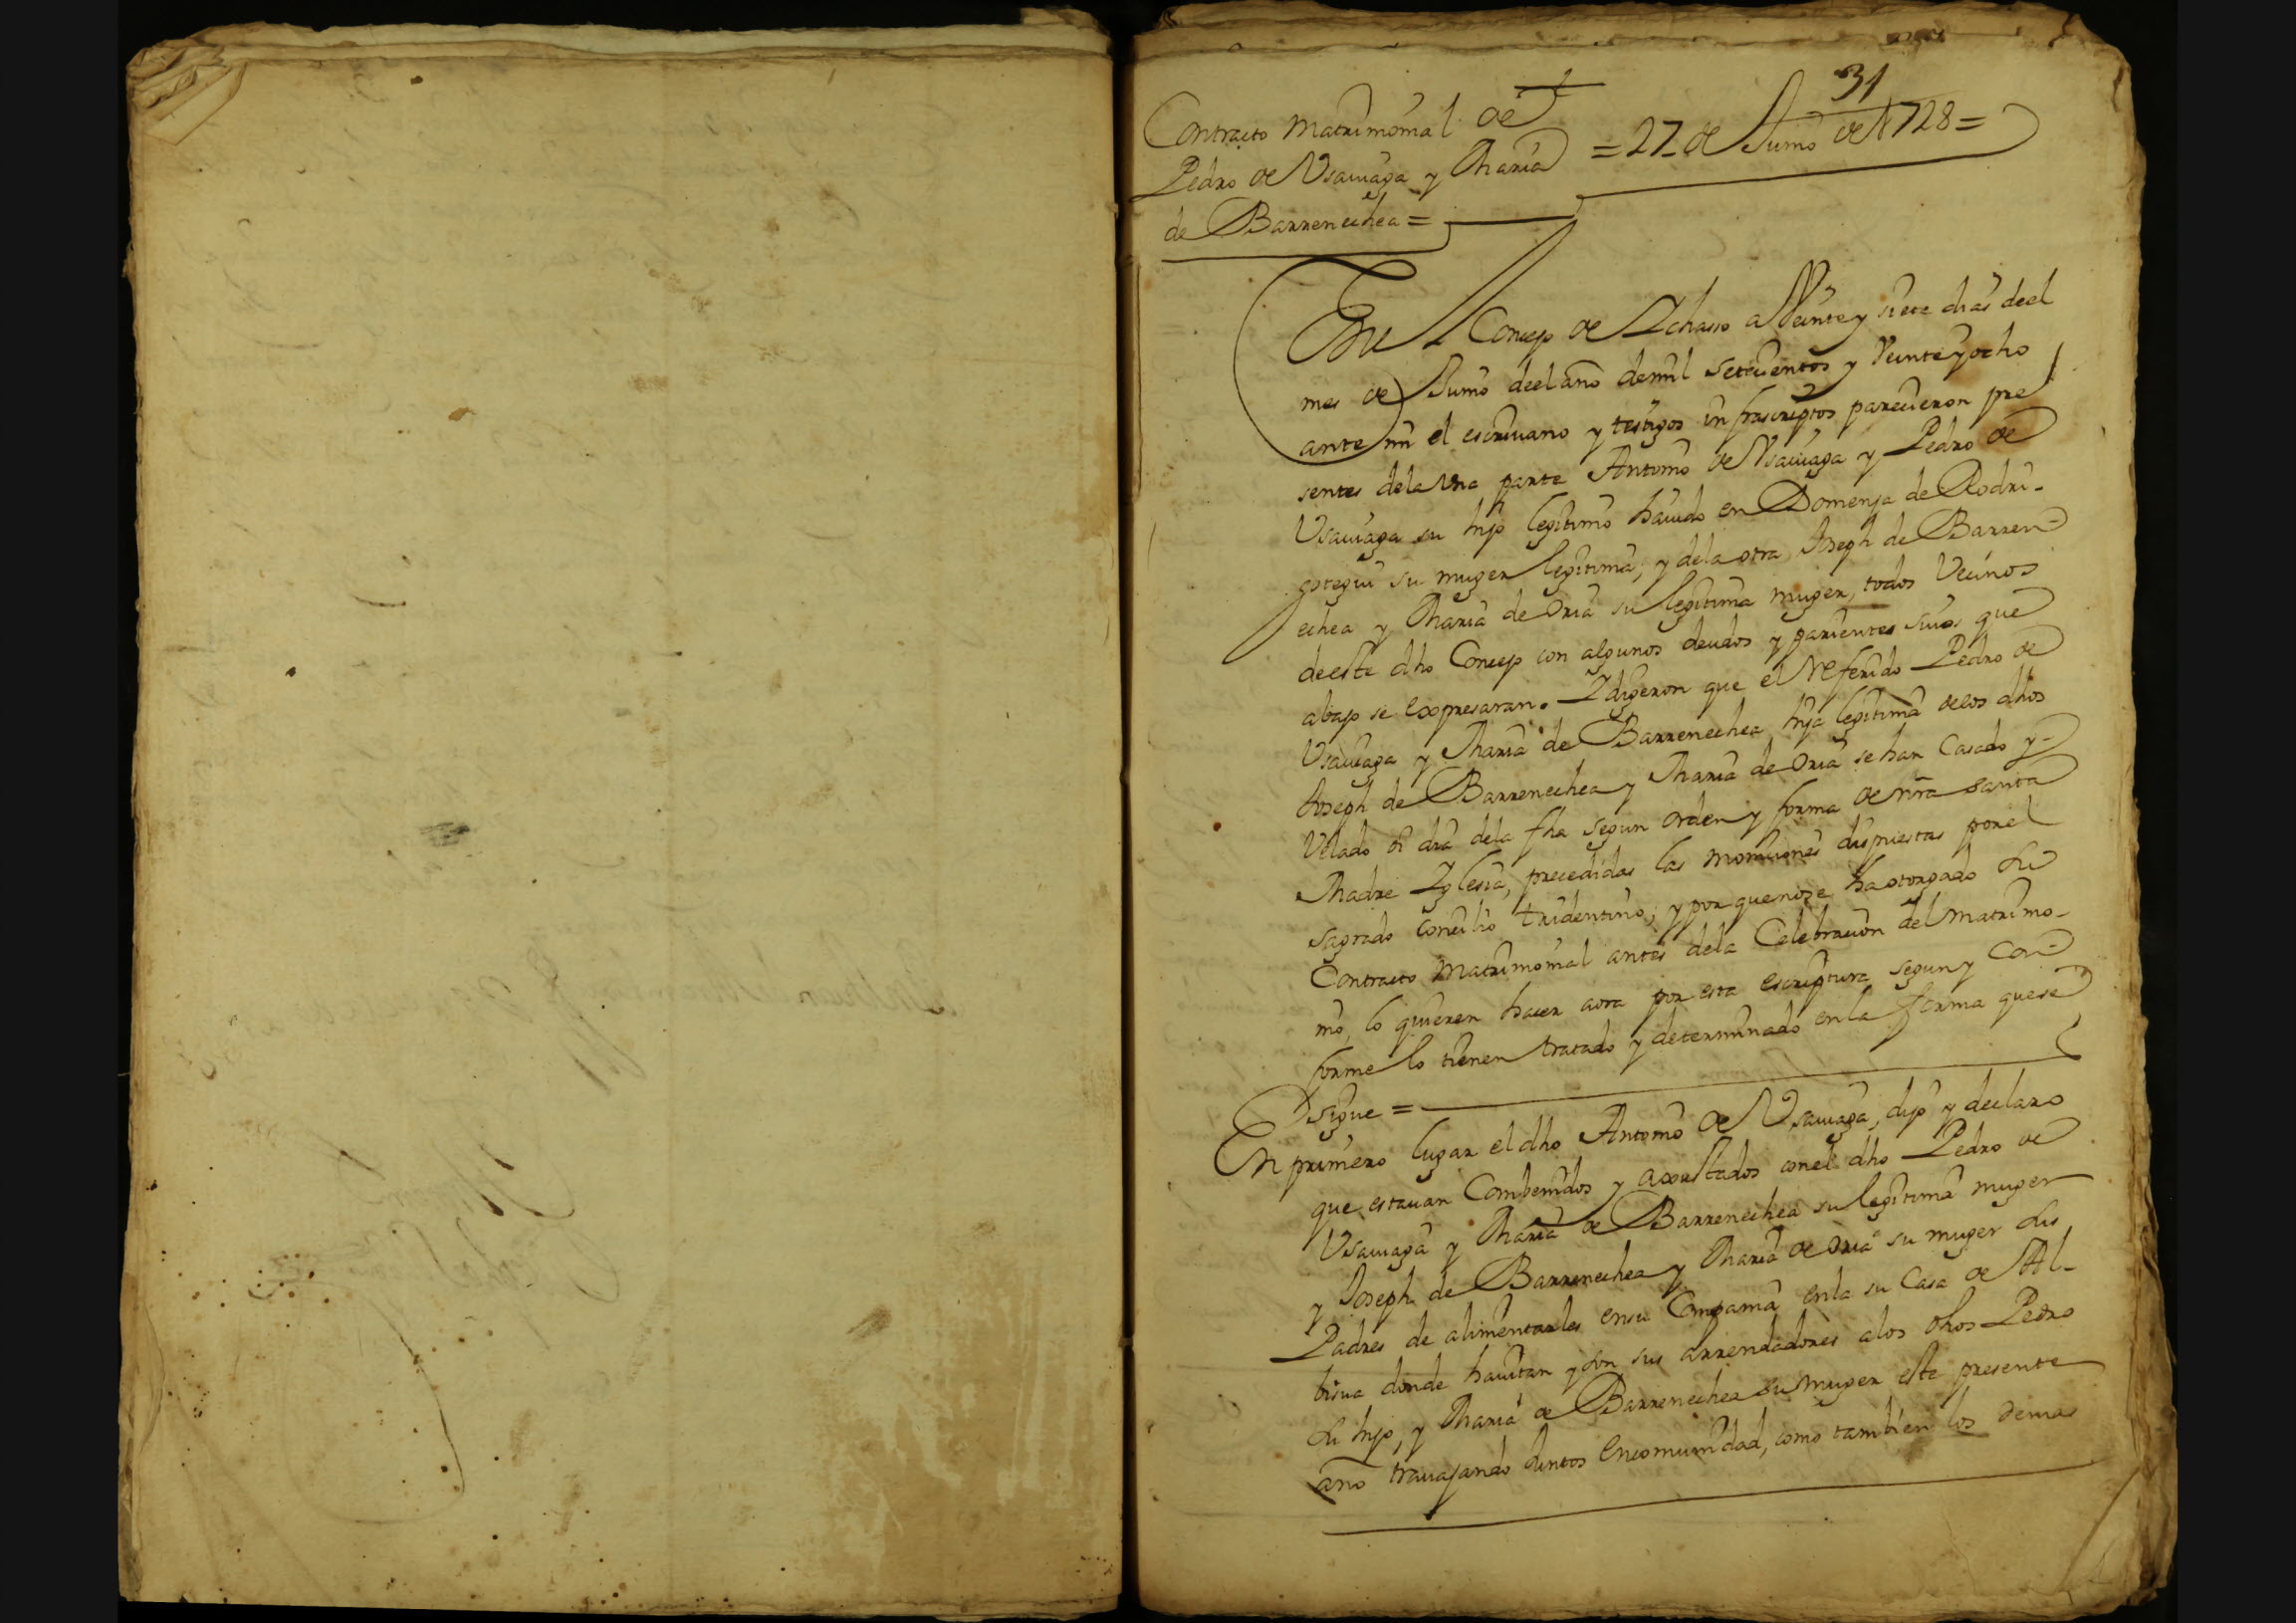 31
Contracto Matrimonial de
Pedro de Vsauiaga y Maria
de Barrenechea =
= 27 de Junio de 1728 =
En el Concejo de Ychasso a Veinte y siete dias deel
mes de Junio deel año demil setecientos y Veinte y ocho
ante mi el escriuano y testigos infrascriptos parecieron pre
sentes dela Vna parte Antonio de Vsauiaga y Pedro de
Vsauiaga su hijo legitimo hauido en Domenja de Rodri-
gotegui su muger legitima, y dela otra Joseph de Barren-
echea y Maria de Oria su legitima muger, todos Vecinos
deeste dho Concejo con algunos deudos y parientes suios que
abajo se expresaran. Y digeron que el Referido Pedro de
Vsauiaga y Maria de Barrenechea hija legitima delos dhos
Joseph de Barrenechea y Maria de Oria se han Casado y-
Velado oi dia dela fha segun orden y forma de nra santa
Madre Yglesia, precedidas las moniciones dispuestas porel
sagrado concilio tridentino; y por quenose ha otorgado su
Contracto Matrimonial antes dela Celebracion del matrimo-
nio, lo quieren hacer aora por esta escriptura segun y con-
forme lo tienen tratado y determinado enla forma quese
sigue =
En primero lugar el dho Antonio de Vsauiaga, dijo y declaro
que estauan Combenidos y axustados conel dho Pedro de
Vsauiaga y Maria de Barrenechea su legitima muger
y Joseph de Barrenechea y Maria de Oria su muger sus
Padres de alimentarles ensu Compania enla su Casa de Al-
bisua donde hauitan y son sus arrendadores alos dhos Pedro
su hijo, y Maria de Barrenechea su muger este presente
año trauajando Juntos Encomunidad, como tambien los demas